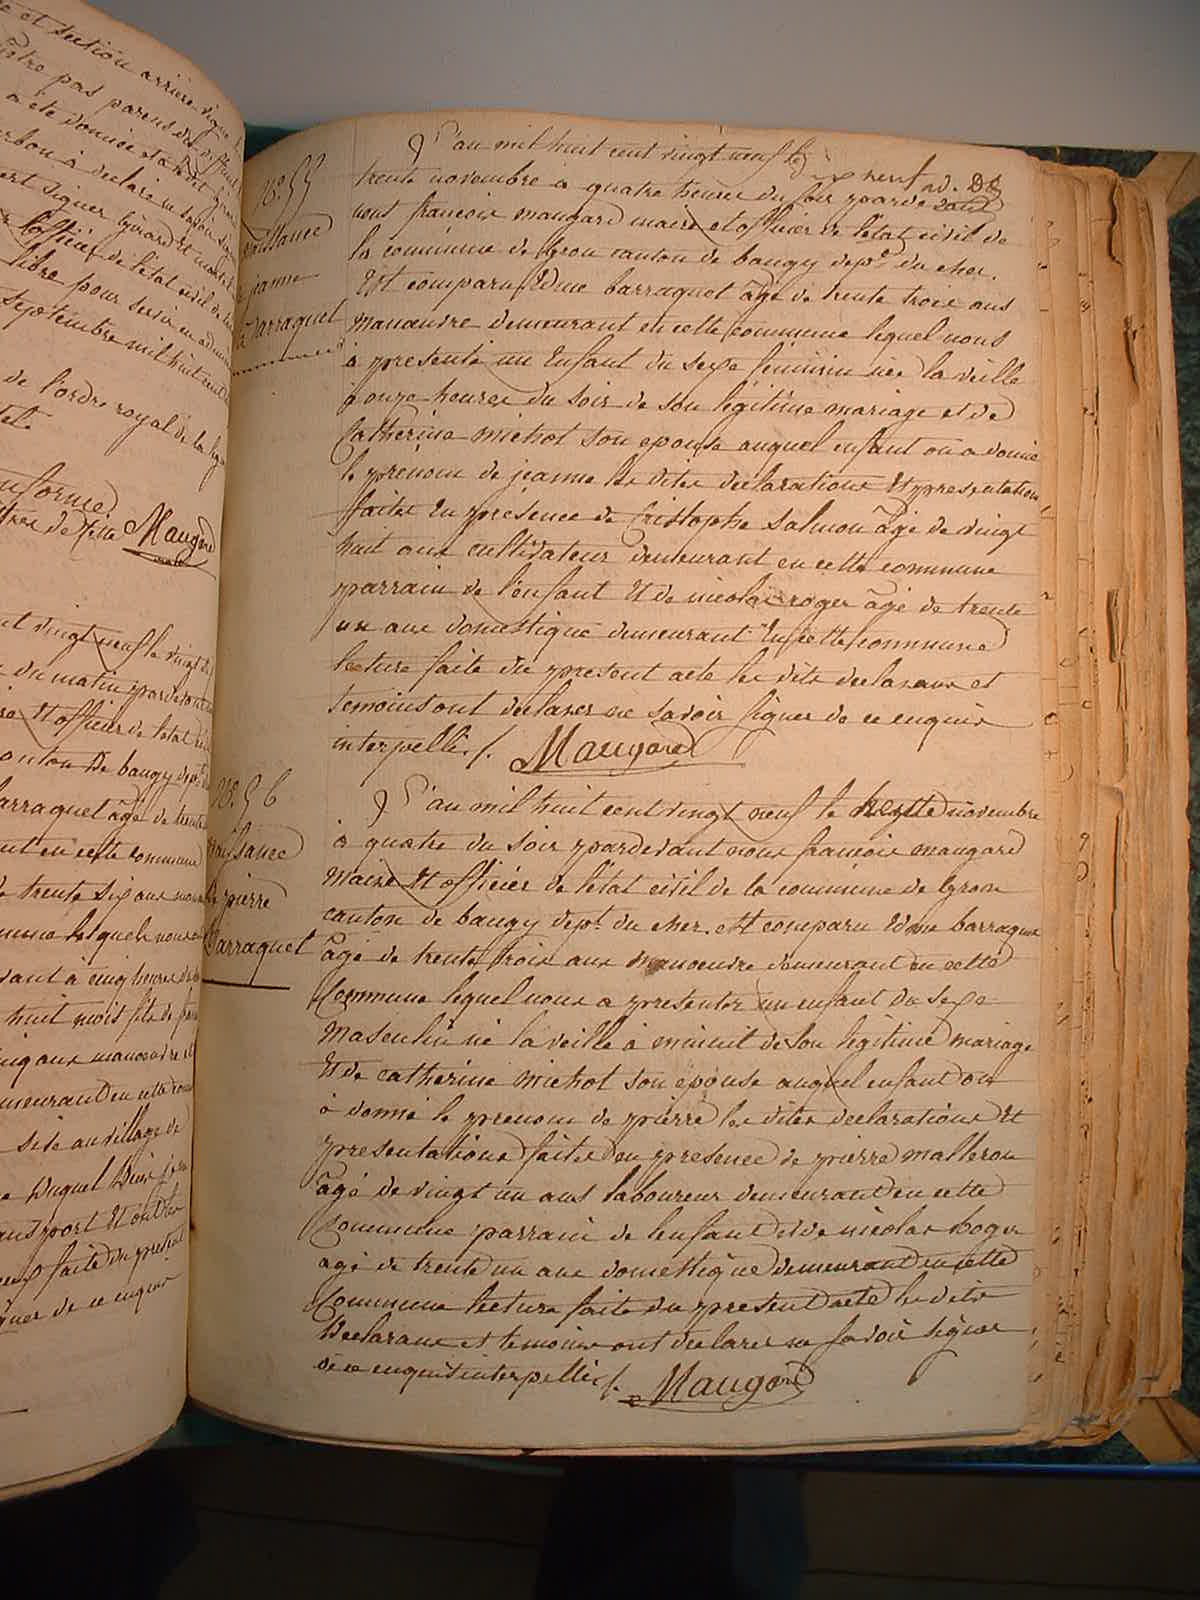 e et section arriere
être pas parens des
a été donnée
à declaré ne savoir
signer
l'officier de l'état civil de
libre pour servir
septembre mil huit cent
de l'ordre royal de la
Maugard
vingt neuf le vingt
du matin pardevant
et officier de l'état
canton de baugy dept
barraquet âgé de trente
en cette commune
trente six ans
lequel nous
à cinq heures
huit mois fils de
ans manoeuvre et
demeurant en cette
sise au village de
transport et
faite du present
signer de ce enquis
No. 55
naissance
de jeanne
barraquet
L'an mil huit cent vingt neuf le
trente novembre a quatre heures du soir pardevant
nous francois maugard maire et officier de l'état civil de
la commune de gron canton de baugy dept. du cher.
Est comparu Edme barraquet âgé de trente trois ans
manoeuvre demeurant en cette commune lequel nous
à presenté un Enfant du sexe feminin née la veille
à onze heures du soir de son légitime mariage et de
Catherine michot son epouse auquel enfant on a donné
le prénom de jeanne les dites declarations Et presentation
faites En presence de Cristophe salmon âgé de vingt
huit ans cultivateur demeurant en cette commune
parrain de l'enfant Et de nicolas roger âgé de trente
un ans domestique demeurant En cette commune
lecture faite du present acte les dits declarans et
temoins ont declarer ne savoir signer de ce enquis
interpellés /. Maugard
No. 56
naissance
de pierre
Barraquet
L'an mil huit cent vingt neuf le trente novembre
à quatre du soir pardevant nous francois maugard
maire Et officier de l'état civil de la commune de gron
canton de baugy dept. du cher. est comparu Edme barraquet
âgé de trente trois ans manoeuvre demeurant en cette
Commune lequel nous a presenter un enfant du sexe
masculin né la veille à minuit de son légitime mariage
Et de catherine michot son epouse auquel enfant on
à donné le prenom de pierre les dites declarations Et
presentations faites en presence de pierre malleron
âgé de vingt un ans laboureur demeurant en cette
Commune parrain de lenfant et de nicolas Roger
agé de trente un ans domestique demeurant en cette
Commune lecture faite du present acte les dits
Declarans et temoins ont declarer ne savoir signer
de ce enquis interpellés /. Maugard